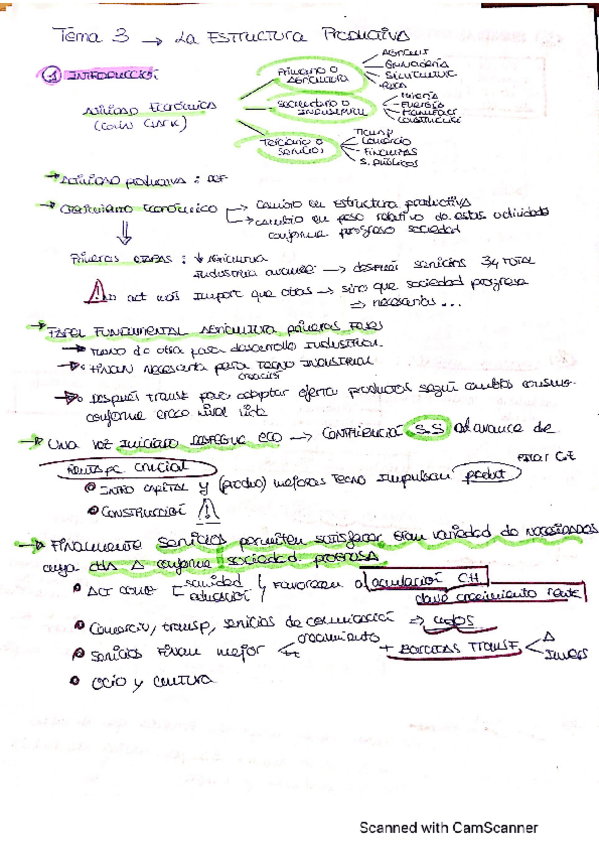 Tema 3 → La Estructura Productiva
① INTRODUCCIÓN
Actividad Económica
(Colin Clark)
Primario o
Agricultura
Agricult
Ganadería
Silvicultura
Pesca
Secundario o
Industrial
Minería
Energía
Manufact
Construcción
Terciario o
Servicios
Transp
Comercio
Finanzas
S. Públicos
→ Actividad productiva : DEF
→ Crecimiento económico → cambio en estructura productiva
→ cambio en peso relativo de estas actividades
conforme progresa sociedad
Primeras etapas : ↓ Agricultura
Industria avance → después servicios 3/4 TOTAL
act más import que otras → sino que sociedad progresa
⇒ necesarias ...
→ PAPEL FUNDAMENTAL AGRICULTURA primeras fases
→ Mano de obra para desarrollo INDUSTRIAL
→ Finan necesaria para TECNO INDUSTRIAL
→ Después transf para adaptar oferta productos según cambios consumo
conforme crece nivel
→ Una vez iniciado DESPEGUE ECO → CONTRIBUCIÓN S.S al avance de
renta pc crucial
• INTRO CAPITAL y (produc) mejoras Tecno impulsan product
• CONSTRUCCIÓN ⚠
→ Finalmente servicios permiten satisfacer gran variedad de necesidades
cuya Δ conforme sociedad progresa
• Act como sanidad
educación
favorecen a acumulación CH
clave crecimiento renta
• Comercio, transp, servicios de comunicación ⇒
• Servicios finan mejor
crecimiento
+
• Ocio y cultura
Scanned with CamScanner